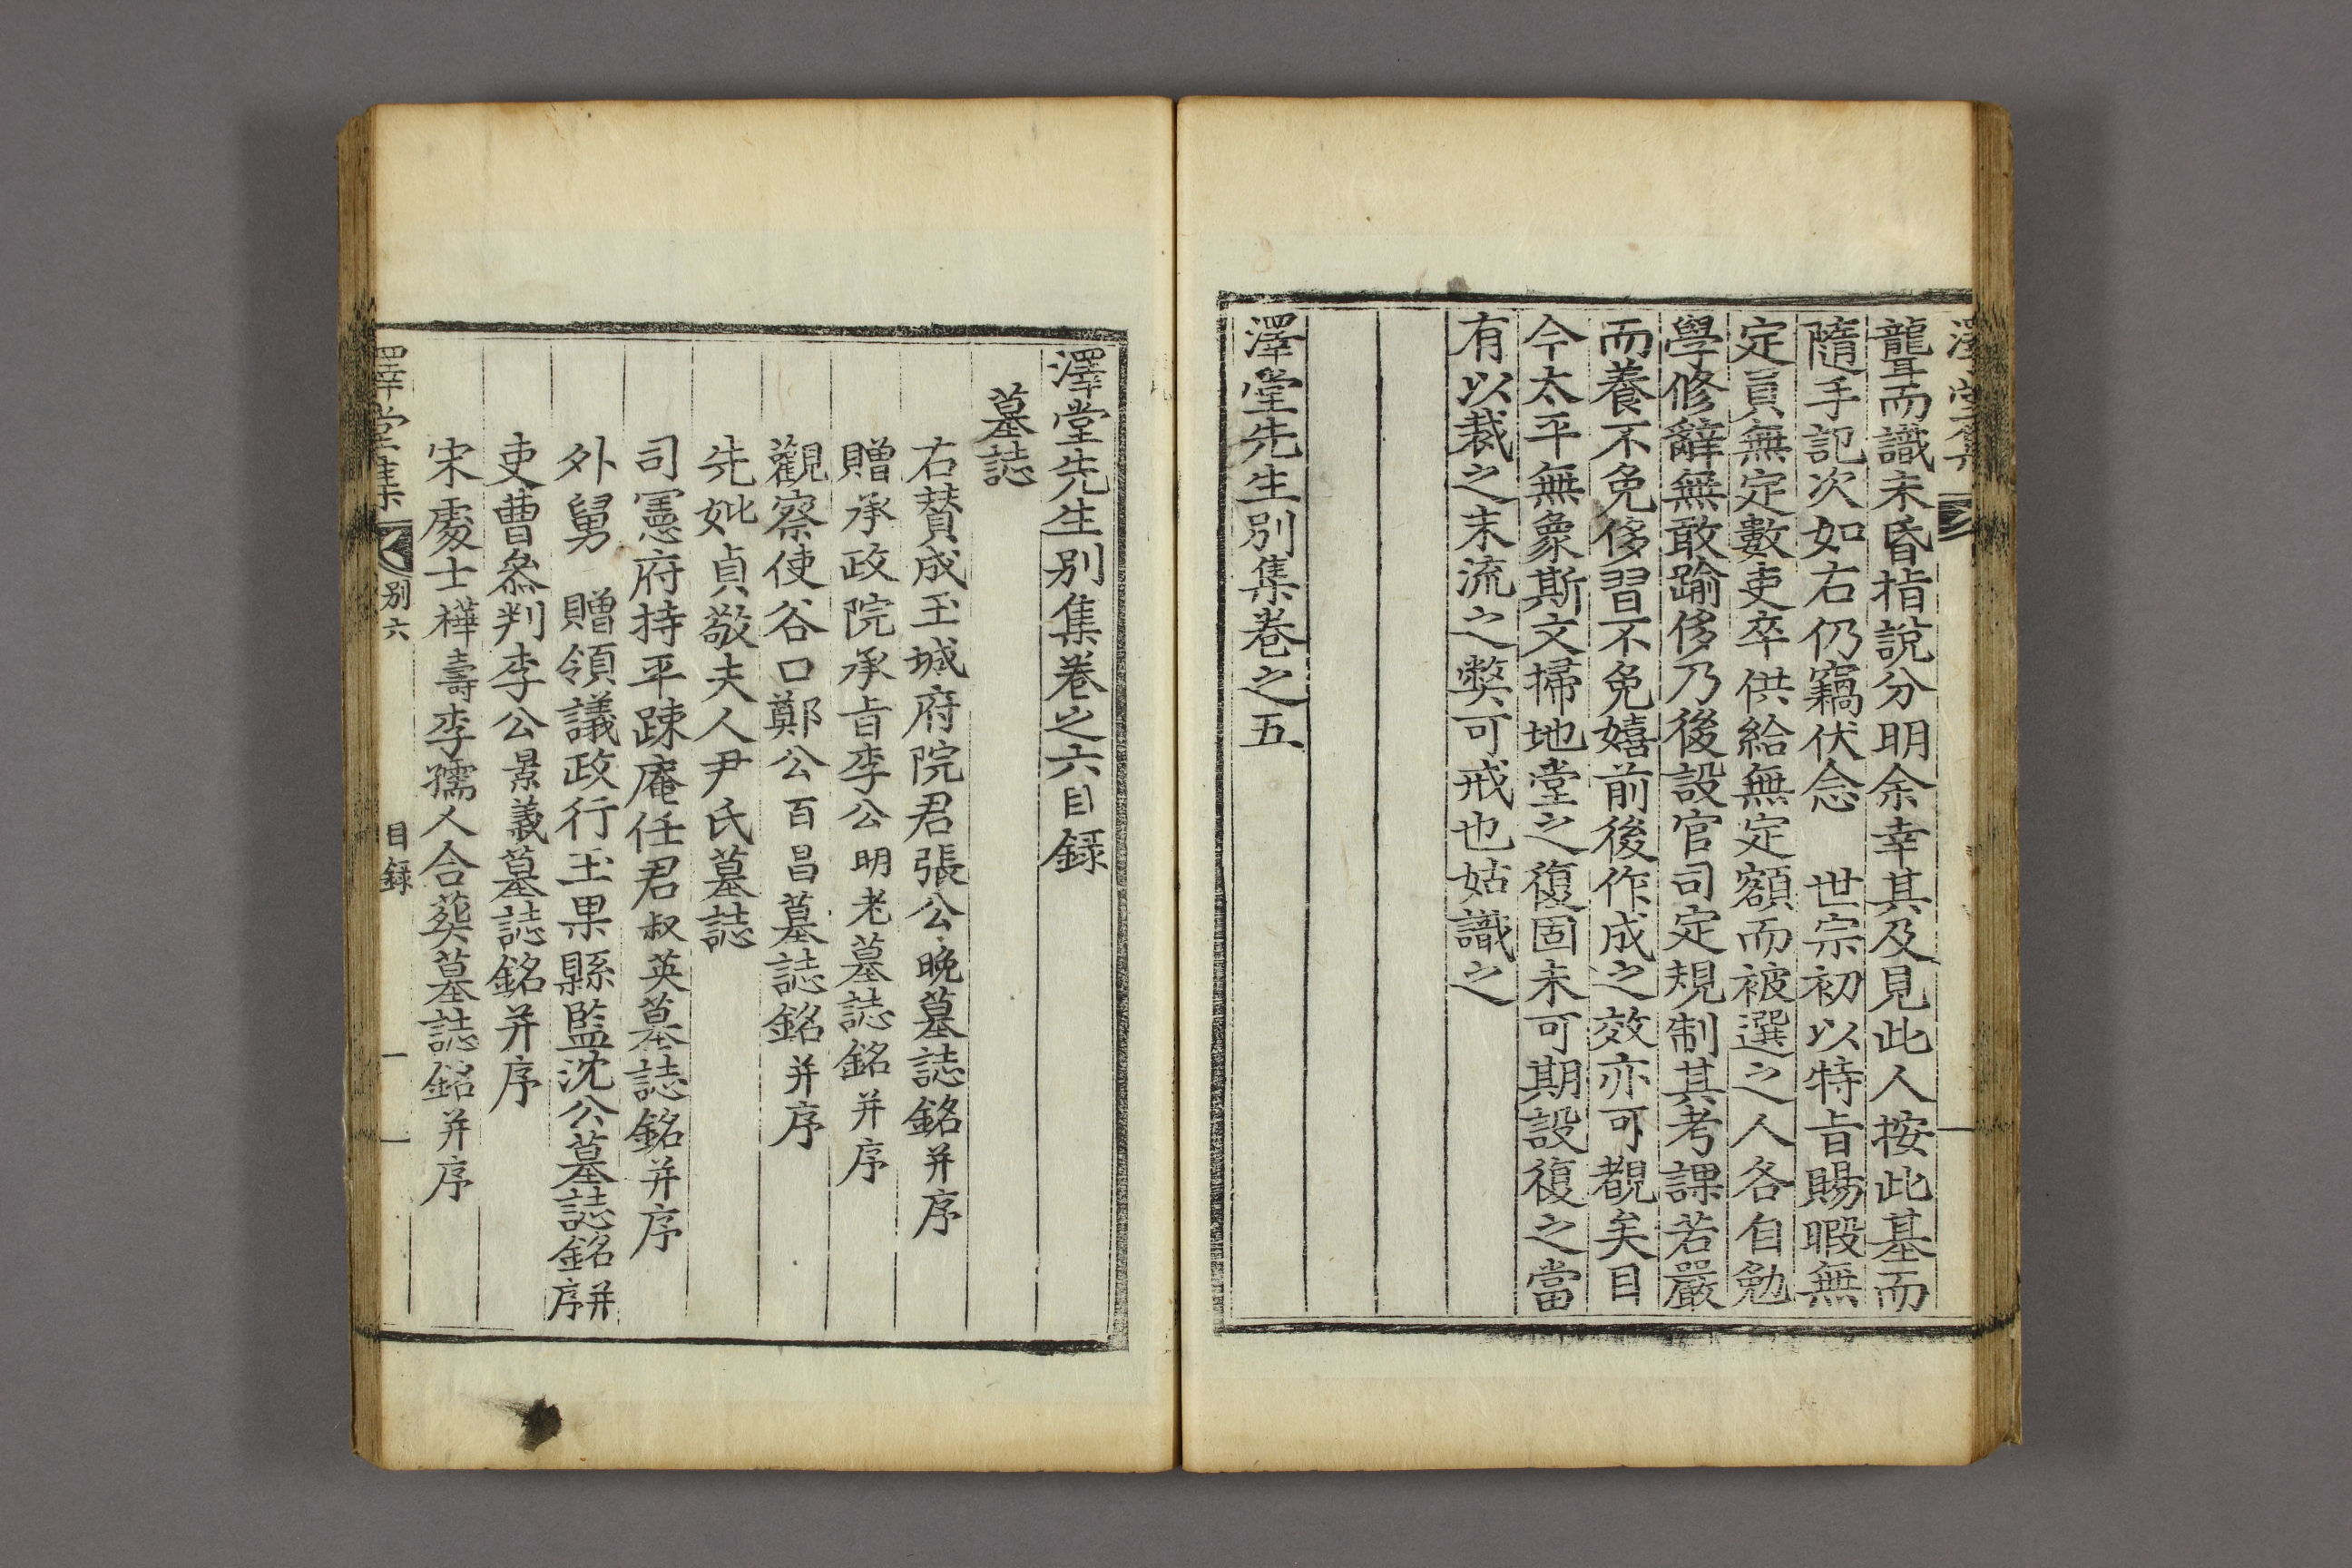 聾而識未昏指說分明余幸其及見此人按此基而
隨手記次如右仍竊伏念 世宗初以特旨賜暇無
定員無定數吏卒供給無定額而被選之人各自勉
學修辭無敢踰侈乃後設官司定規制其考課若嚴
而養不免侈習不免嬉前後作成之效亦可覩矣目
今太平無象斯文掃地堂之復固未可期設復之當
有以裁之末流之弊可戒也姑識之
澤堂先生別集卷之五
澤堂先生別集卷之六目録
墓誌
右賛成玉城府院君張公晚墓誌銘并序
贈承政院承旨李公明老墓誌銘并序
觀察使谷口鄭公百昌墓誌銘并序
先妣貞敬夫人尹氏墓誌
司憲府持平踈庵任君叔英墓誌銘并序
外舅 贈領議政行玉果縣監沈公墓誌銘并序
吏曹叅判李公景義墓誌銘并序
宋處士樺壽李孺人合葬墓誌銘并序
澤堂集 別六 目録 一